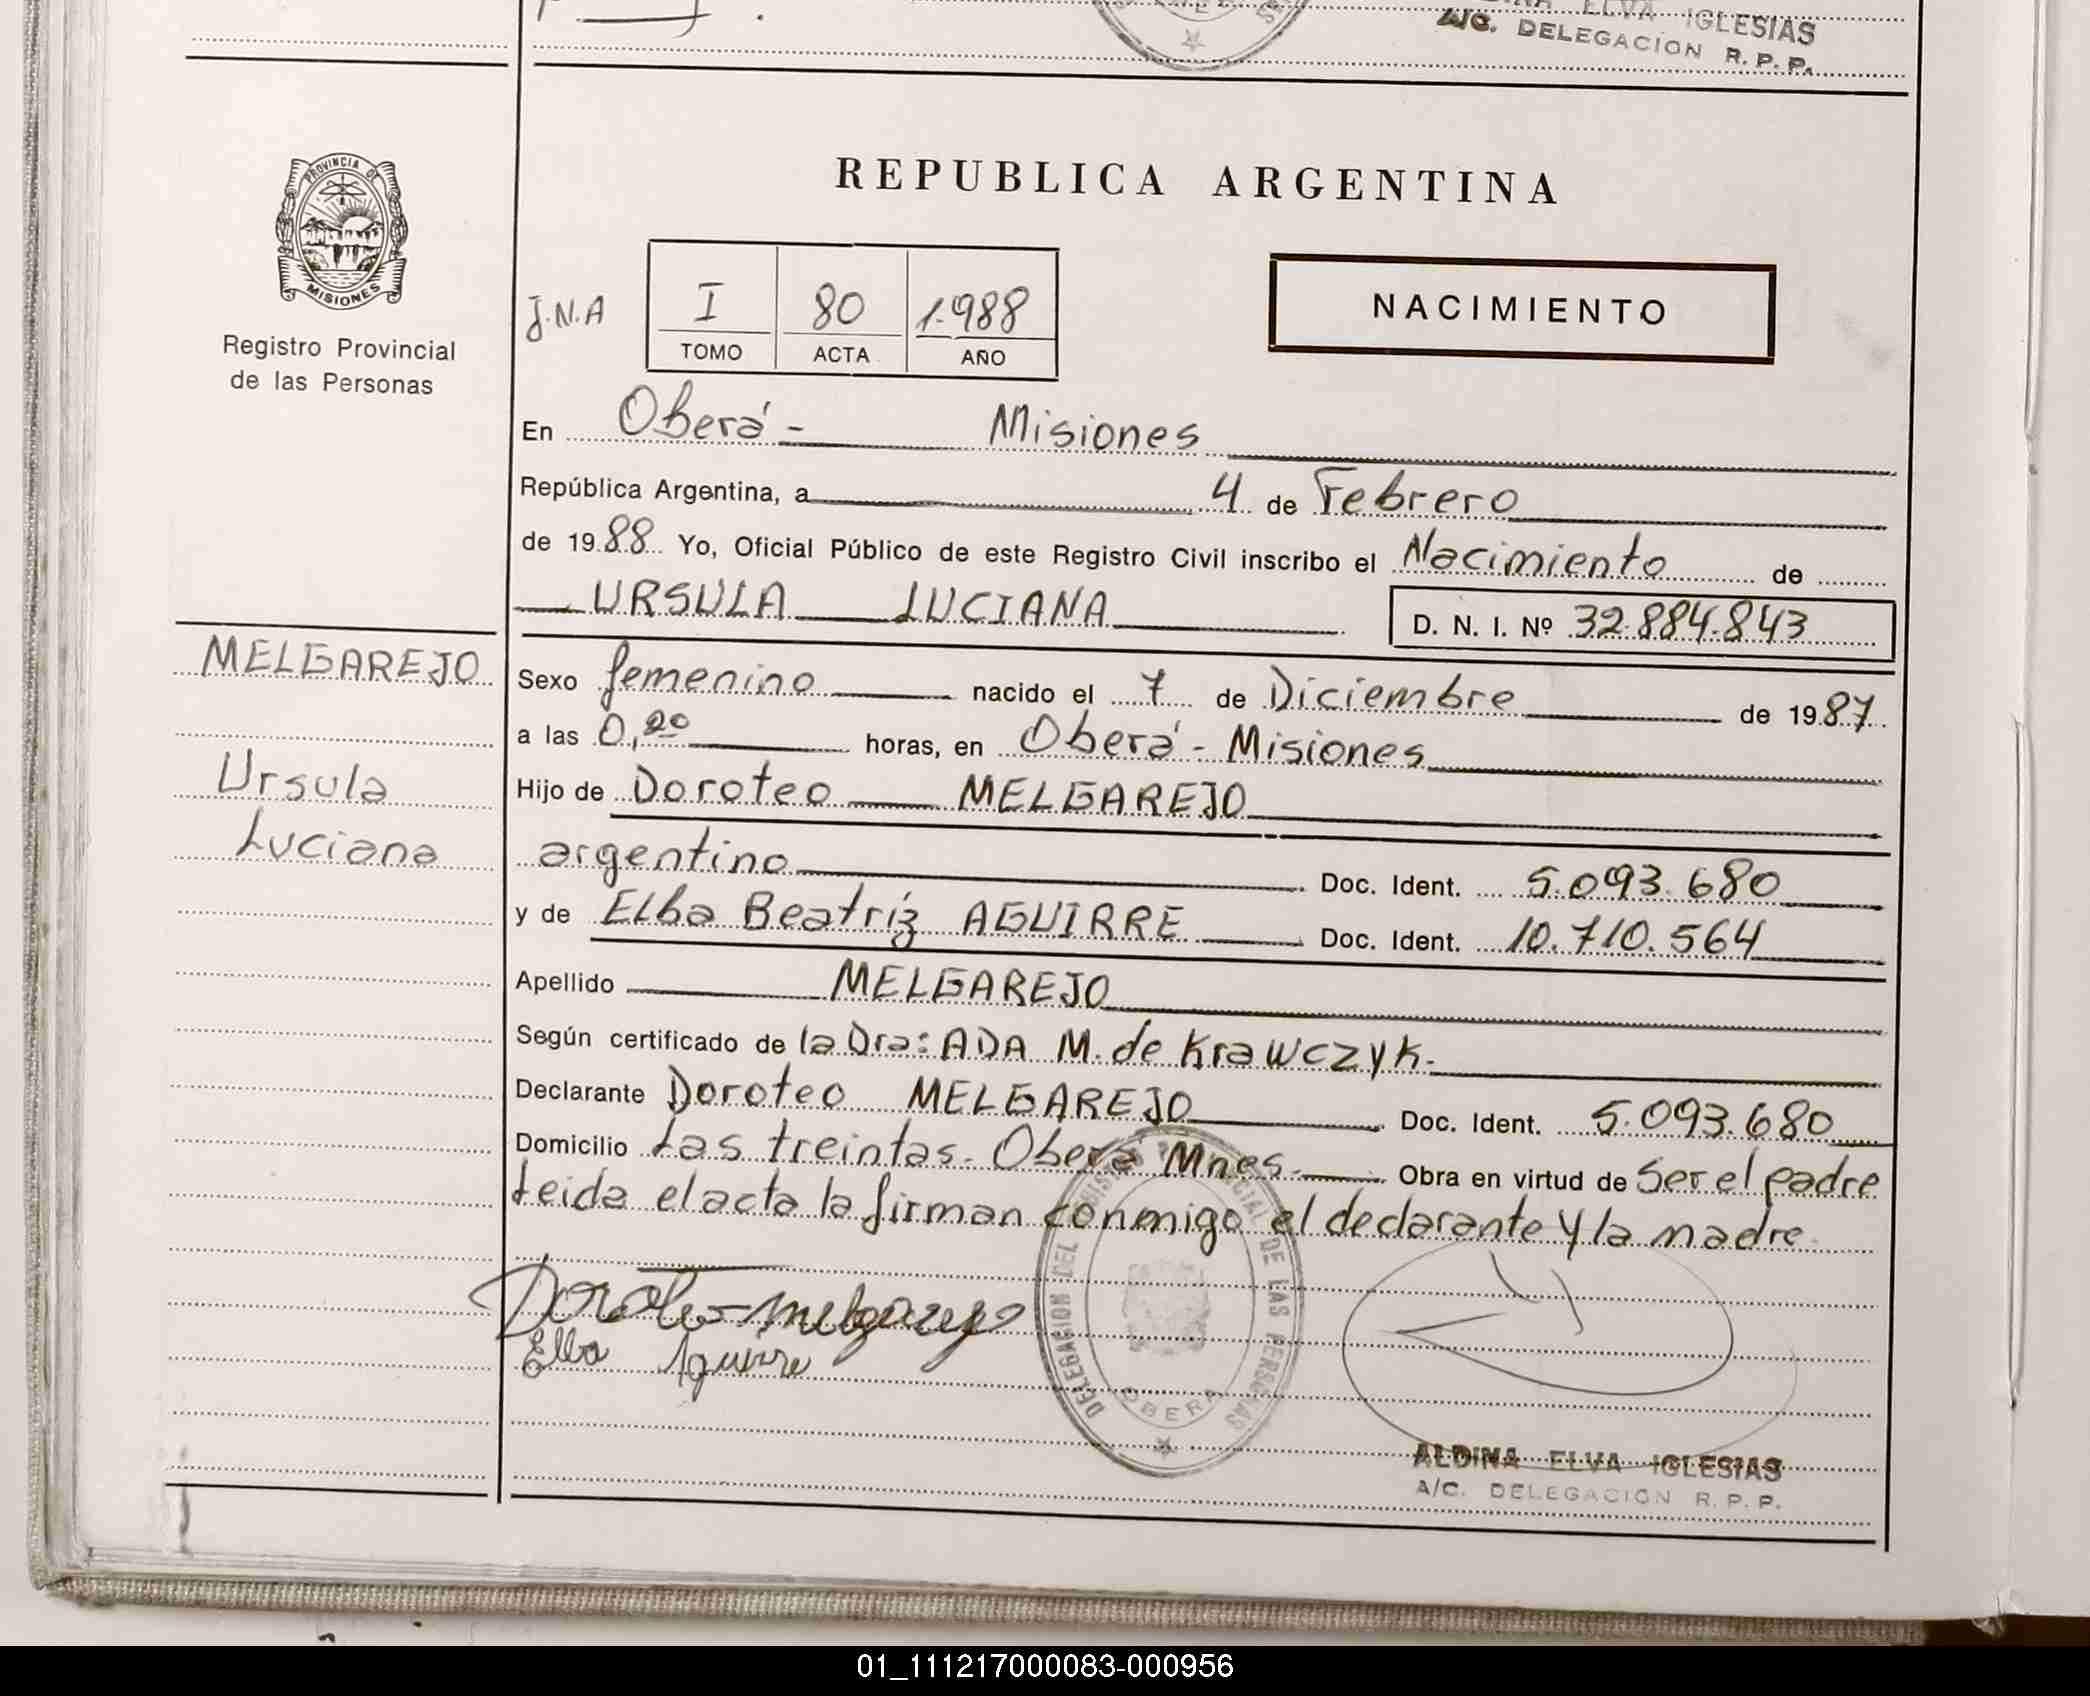 ELVA IGLESIAS
A/C. DELEGACION R. P. P.
PROVINCIA DE
MISIONES
Registro Provincial
de las Personas
REPUBLICA ARGENTINA
NACIMIENTO
J.N.A
I 80 1.988
TOMO ACTA AÑO
En Oberá - Misiones
República Argentina, a 4 de Febrero
de 1988 Yo, Oficial Público de este Registro Civil inscribo el Nacimiento de
URSULA LUCIANA D. N. I. Nº 32.884.843
MELGAREJO
Ursula
Luciana
Sexo femenino nacido el 7 de Diciembre de 1987
a las 0,20 horas, en Oberá - Misiones
Hijo de Doroteo MELGAREJO
argentino Doc. Ident. 5.093.680
y de Elba Beatríz AGUIRRE Doc. Ident. 10.710.564
Apellido MELGAREJO
Según certificado de la Dra: ADA M. de Krawczyk.
Declarante Doroteo MELGAREJO Doc. Ident. 5.093.680
Domicilio Las treintas. Oberá Mnes. Obra en virtud de Ser el padre
Leida el acta la firman conmigo el declarante y la madre.
Doroteo Melgarejo
Elba Aguirre
DELEGACION DEL REGISTRO PROVINCIAL DE LAS PERSONAS
OBERA
ALDINA ELVA IGLESIAS
A/C. DELEGACION R. P. P.
01_111217000083-000956